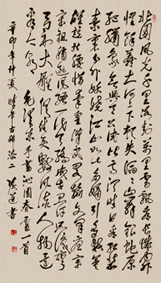 北国風光千里冰封万里雪飘望長城内外
惟余莽莽大河上下顿失滔滔山舞银蛇原驰
蜡象欲與天公试比高须晴日看红装
素裹分外妖娆江山如此多娇引無数英雄竞
折腰惜秦皇漢武略输文采唐
宗宋祖稍逊風骚一代天骄成吉思汗只识弯
弓射大雕俱往矣数風流人物還
看今朝
毛泽东 沁园春雪一首
辛卯年仲夏時年古稀添二 書